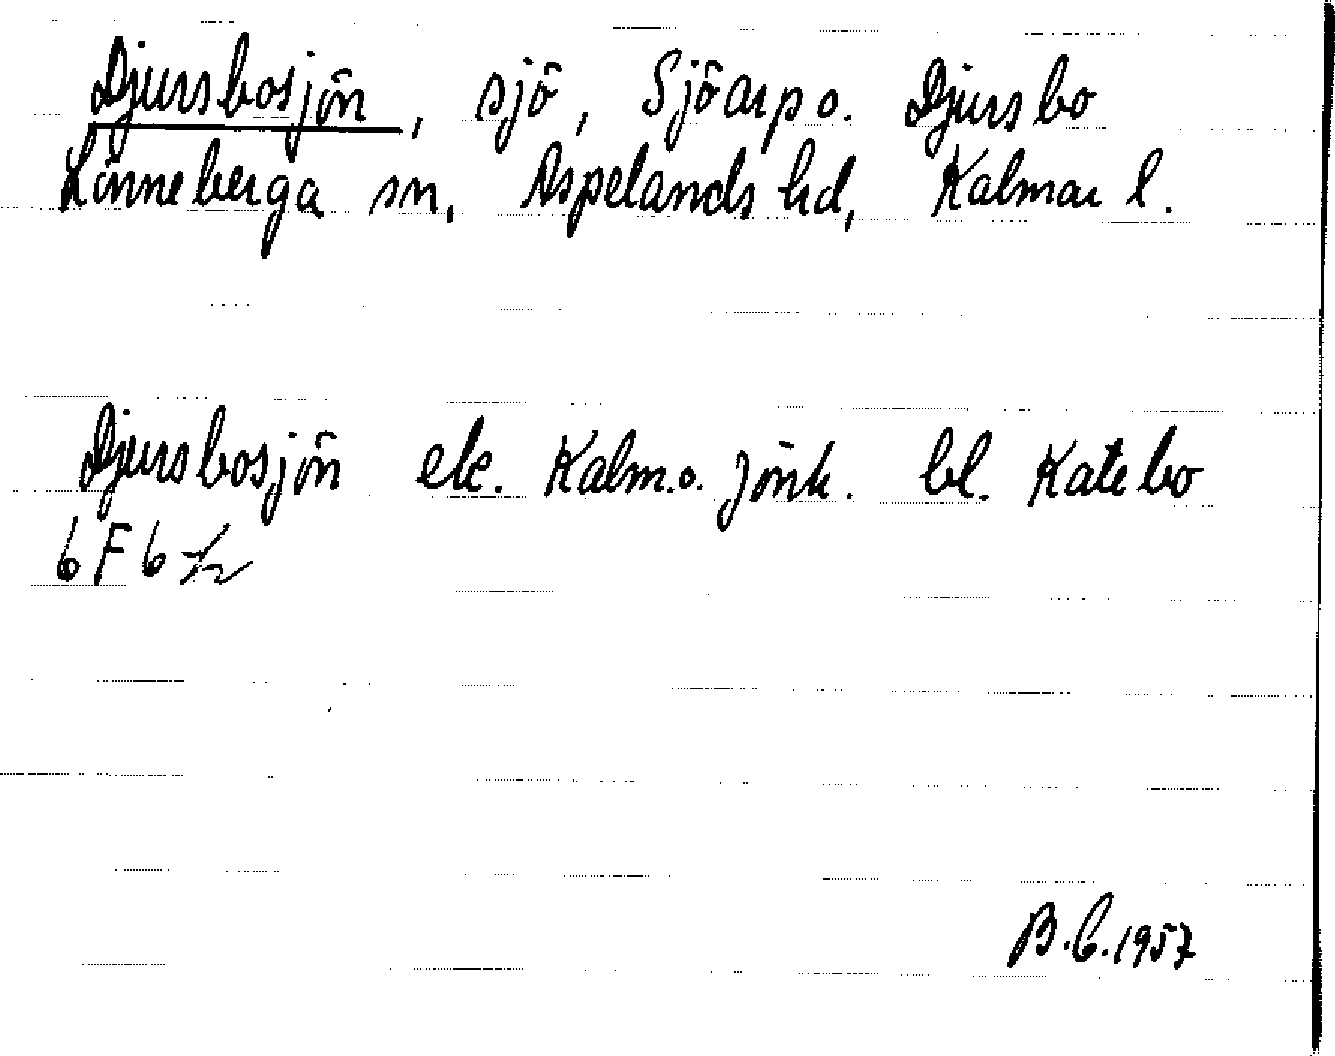 Djursbosjön, sjö, Sjöarp o. Djursbo
Lönneberga sn, Aspelands hd, Kalmar l.
Djursbosjön ek. Kalm.o. Jönk. bl. Katebo
6 F 6
B.C.1957